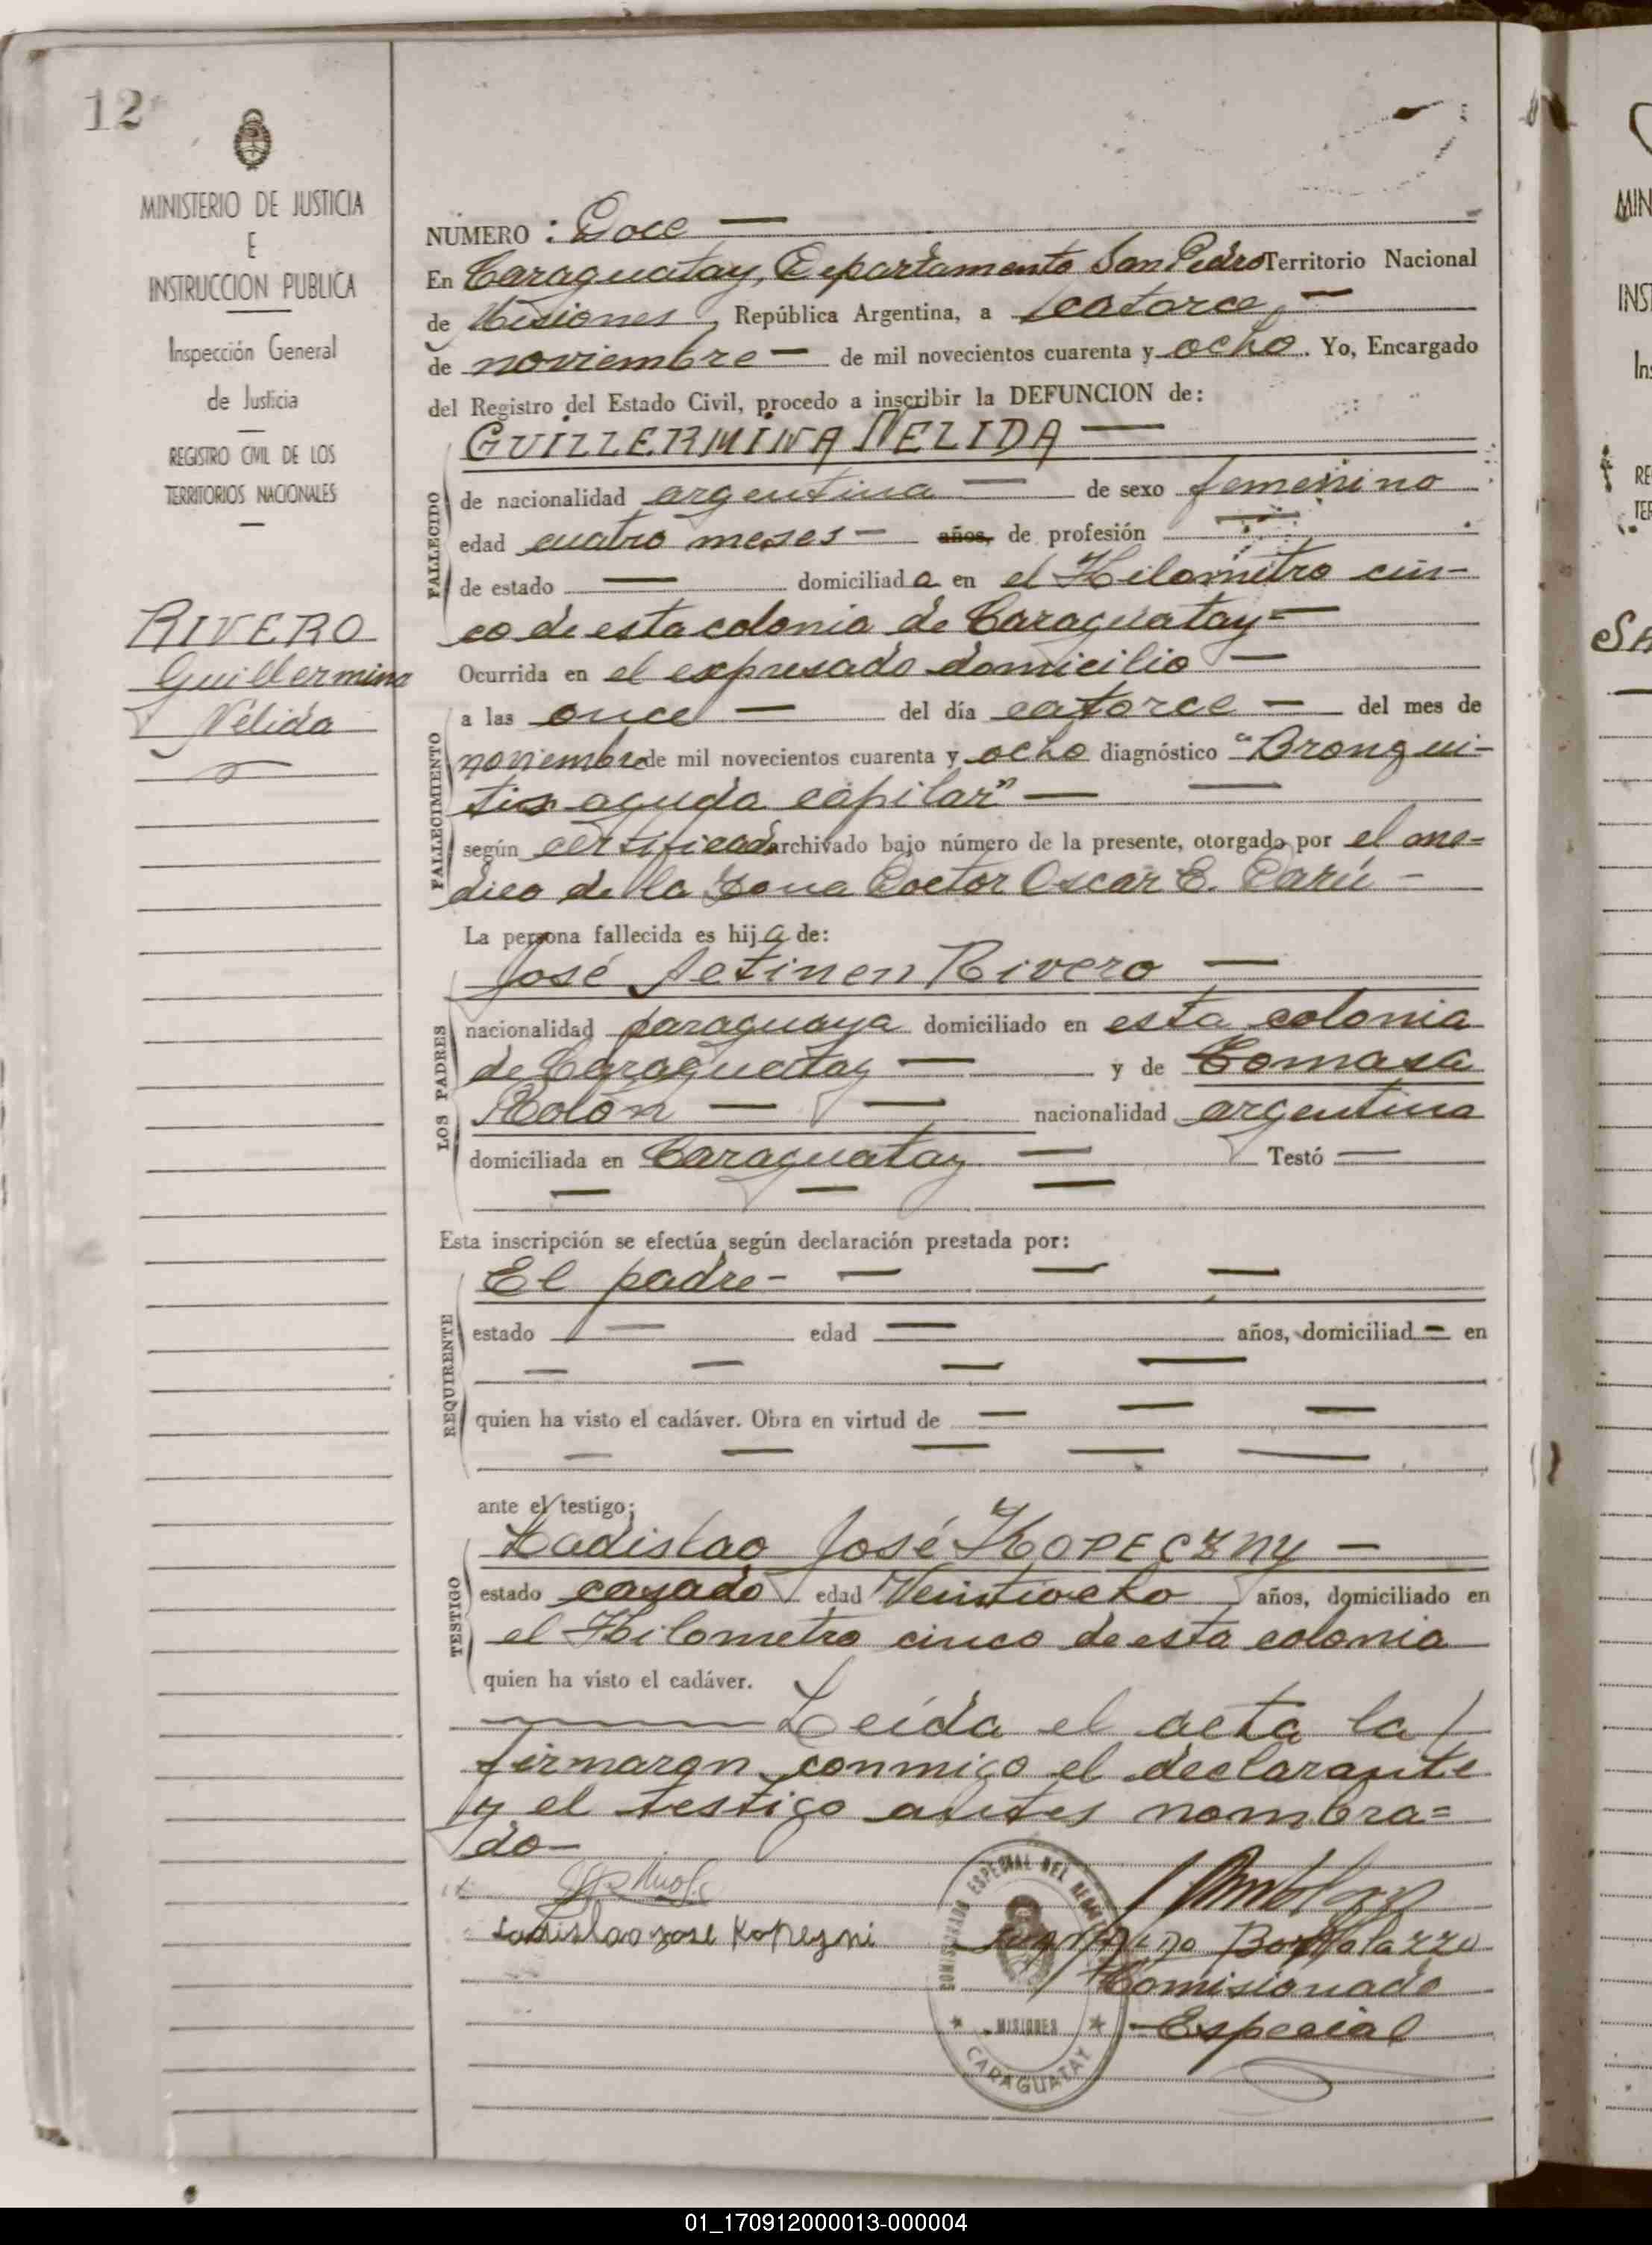 12
MINISTERIO DE JUSTICIA
E
INSTRUCCION PUBLICA
Inspección General
de Justicia
REGISTRO CIVIL DE LOS
TERRITORIOS NACIONALES
RIVERO
Guillermina
Nélida
NUMERO : Doce —
En Caraguatay, Departamento San Pedro Territorio Nacional
de Misiones, República Argentina, a catorce —
de noviembre — de mil novecientos cuarenta y ocho. Yo, Encargado
del Registro del Estado Civil, procedo a inscribir la DEFUNCION de:
GUILLERMINA NELIDA —
FALLECIDO
de nacionalidad argentina — de sexo femenino
edad cuatro meses — años, de profesión —
de estado — domiciliada en el Kilometro cin-
co de esta colonia de Caraguatay =
FALLECIMIENTO
Ocurrida en el expresado domicilio —
a las once — del día catorce — del mes de
noviembre de mil novecientos cuarenta y ocho diagnóstico "Bronqui-
tis aguda capilar" — —
según certificado archivado bajo número de la presente, otorgado por el me=
dico de la zona Doctor Oscar E. Darú -
La persona fallecida es hija de:
LOS PADRES
José Rivero —
nacionalidad paraguaya domiciliado en esta colonia
de Caraguatay — y de Tomasa
Rolón — — nacionalidad argentina
domiciliada en Caraguatay — Testó —
— — —
Esta inscripción se efectúa según declaración prestada por:
REQUIRENTE
El padre - — — —
estado — edad — años, domiciliad — en
— — — —
quien ha visto el cadáver. Obra en virtud de — — —
— — — — —
ante el testigo:
TESTIGO
Ladislao José KOPECZNY —
estado casado edad Veintiocho años, domiciliado en
el Kilometro cinco de esta colonia
quien ha visto el cadáver.
Leída el acta la
firmaron conmigo el declarante
y el testigo antes nombra=
do —
Ladislao Jose Kopezni
Bortolazzo
Comisionado
Especial
COMISIONADO ESPECIAL DEL
MISIONES
CARAGUATAY
MIN
INS
Ins
RE
TER
SA
01_170912000013-000004